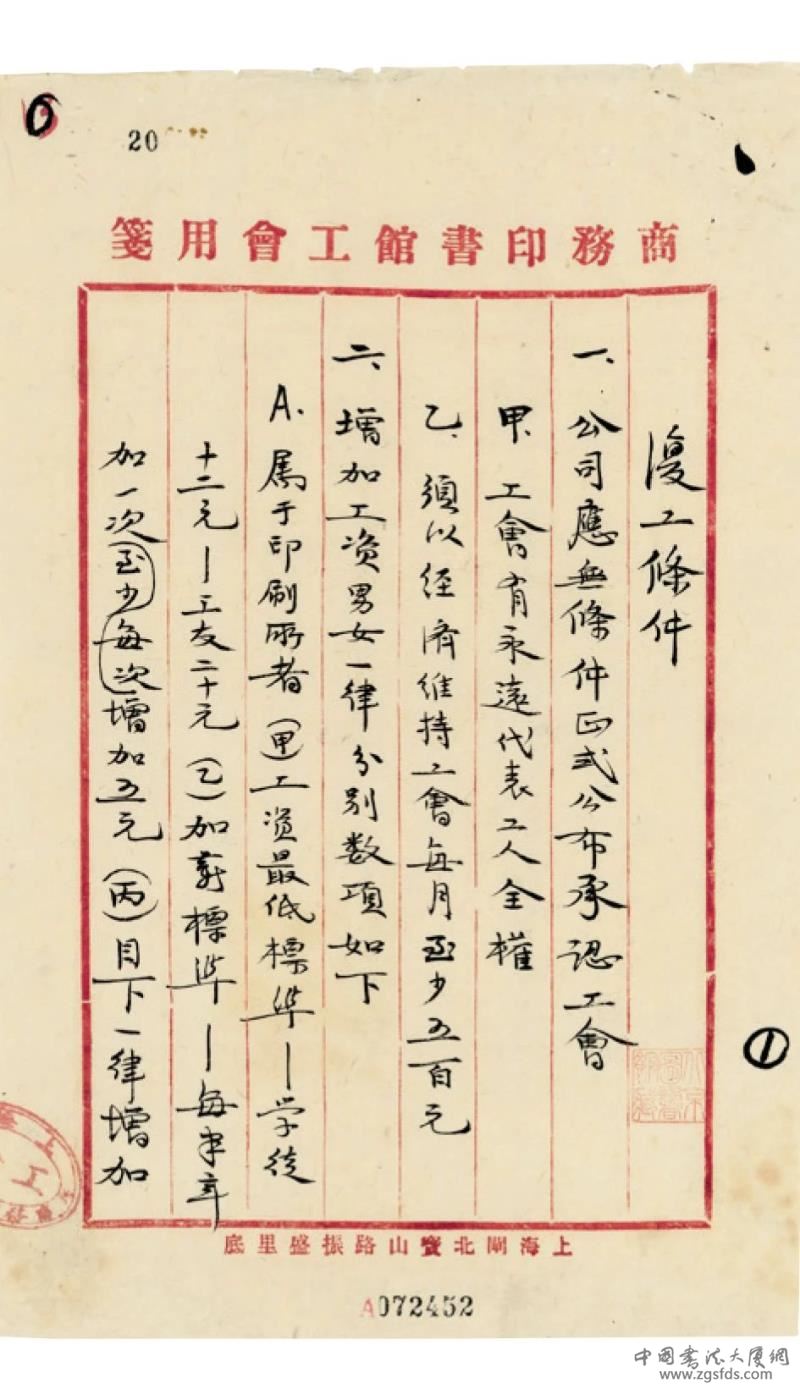 20
商務印書館工會用箋
復工條件
一、公司應無條件正式公布承認工會
甲、工會有永遠代表工人全權
乙、須以经濟維持工會每月至少五百元
二、增加工资男女一律分别数項如下
A.属于印刷所者(甲)工资最低標準—学徒
十二元—工友二十元(乙)加薪標準—每年
加一次至少每次增加五元(丙)目下一律增加
①
上海閘北寶山路振盛里底
A072452
中国書法大厦網
www.zgsfds.com